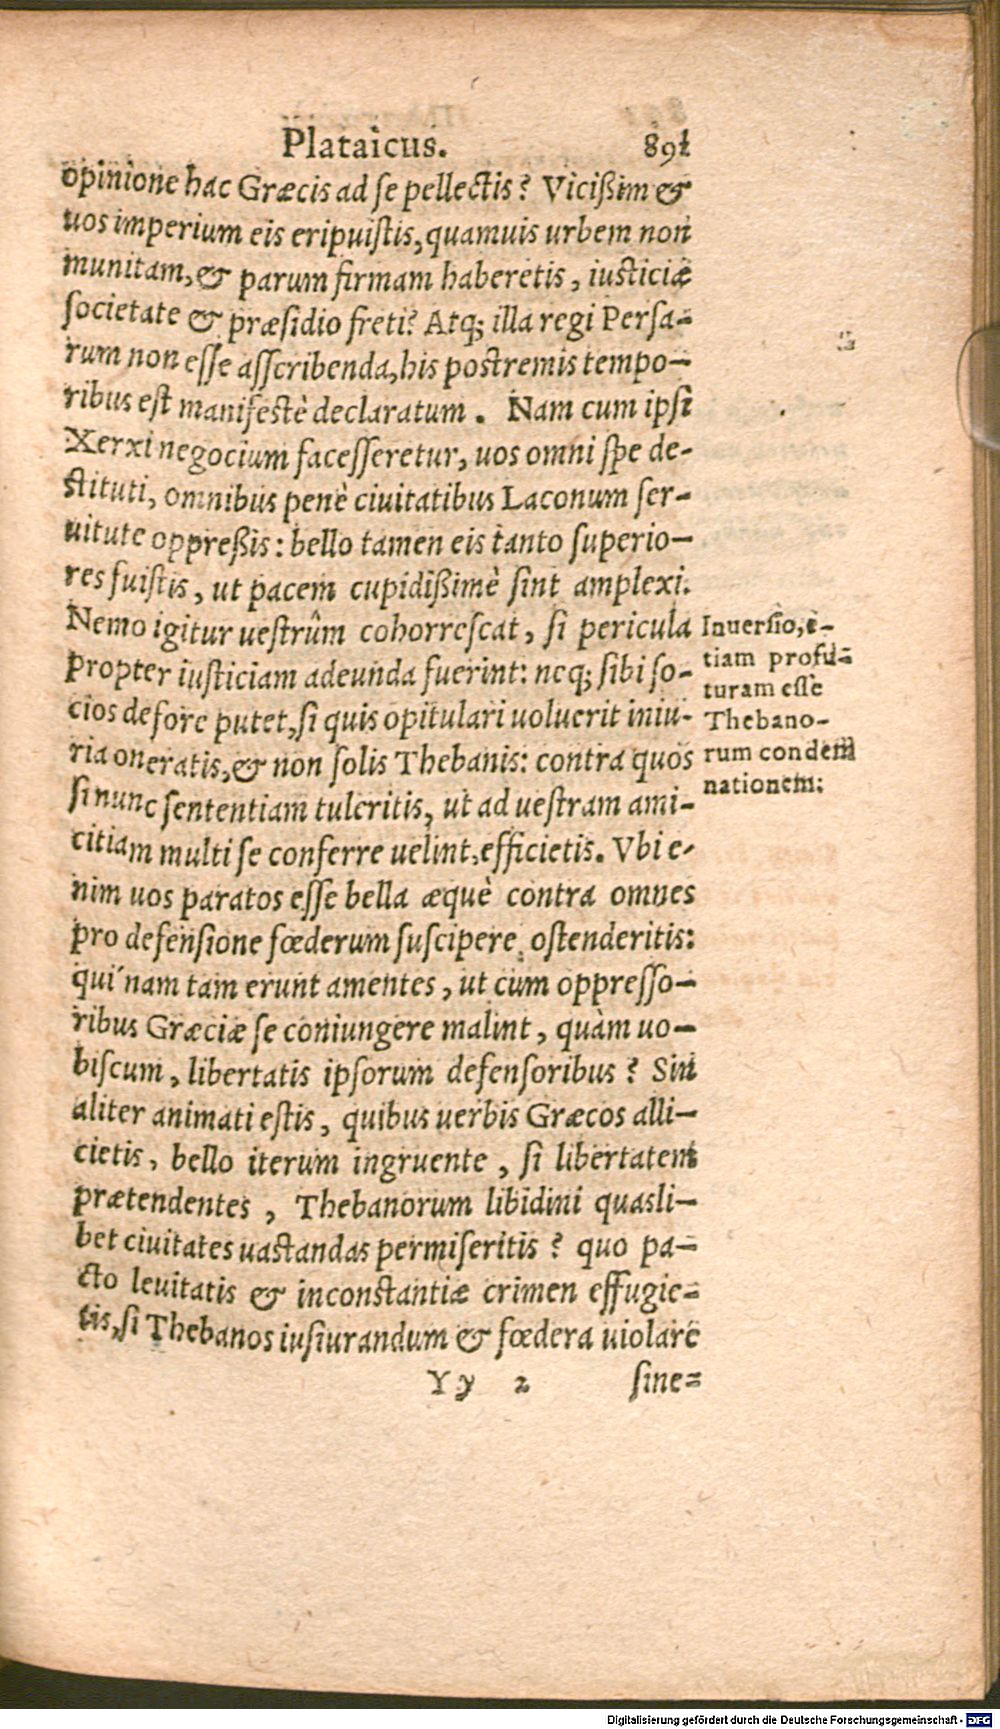 Plataicus. 891
opinione hac Græcis ad ſe pellectis? Vicißim &
uos imperium eis eripuiſtis, quamuis urbem non
munitam, & parum firmam haberetis, iuſticiæ
ſocietate & præſidio freti? Atq; illa regi Perſa-
rum non eſſe aſſcribenda, his poſtremis tempo-
ribus eſt manifeſtè declaratum. Nam cum ipſi
Xerxi negocium faceſſeretur, uos omni ſpe de-
ſtituti, omnibus penè ciuitatibus Laconum ſer-
uitute oppreßis: bello tamen eis tanto ſuperio-
res fuiſtis, ut pacem cupidißimè ſint amplexi.
Nemo igitur ueſtrûm cohorreſcat, ſi pericula
propter iuſticiam adeunda fuerint: neq; ſibi ſo-
cios defore putet, ſi quis opitulari uoluerit iniu-
ria oneratis, & non ſolis Thebanis: contra quos
ſi nunc ſententiam tuleritis, ut ad ueſtram ami-
citiam multi ſe conferre uelint, efficietis. Vbi e-
nim uos paratos eſſe bella æquè contra omnes
pro defenſione fœderum ſuſcipere, oſtenderitis:
qui´nam tam erunt amentes, ut cum oppreſſo-
ribus Græciæ ſe coniungere malint, quàm uo-
biſcum, libertatis ipſorum defenſoribus? Sin
aliter animati eſtis, quibus uerbis Græcos alli-
cietis, bello iterum ingruente, ſi libertatem
prætendentes, Thebanorum libidini quasli-
bet ciuitates uaſtandas permiſeritis? quo pa-
cto leuitatis & inconſtantiæ crimen effugie-
tis, ſi Thebanos iuſiurandum & fœdera uiolare
Yy 2 ſine-
Inuerſio, e-
tiam profu-
turam eſſe
Thebano-
rum condem
nationem:
Digitalisierung gefördert durch die Deutsche Forschungsgemeinschaft - DFG